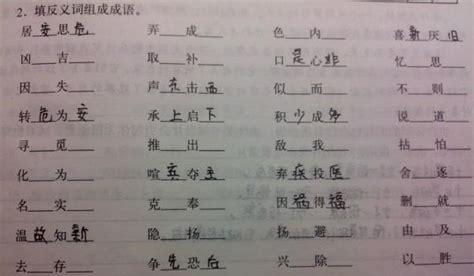 2. 填反义词组成成语。
居安思危 弄___成___ 色___内___ 喜新厌旧
凶___吉___ 取___补___ 口是心非 忆___思___
因___失___ 声东击西 似___而___ 不___则___
转危为安 承上启下 积少成多 说___道___
寻___觅___ 推___出___ 敌___我___ 拈___怕___
化___为___ 喧宾夺主 弃疾投医 舍___逐___
名___实___ 克___奉___ 因祸得福 删___就___
温故知新 隐___扬___ 扬___避___ 由___及___
去___存___ 争先恐后 兴___除___ 以___胜___